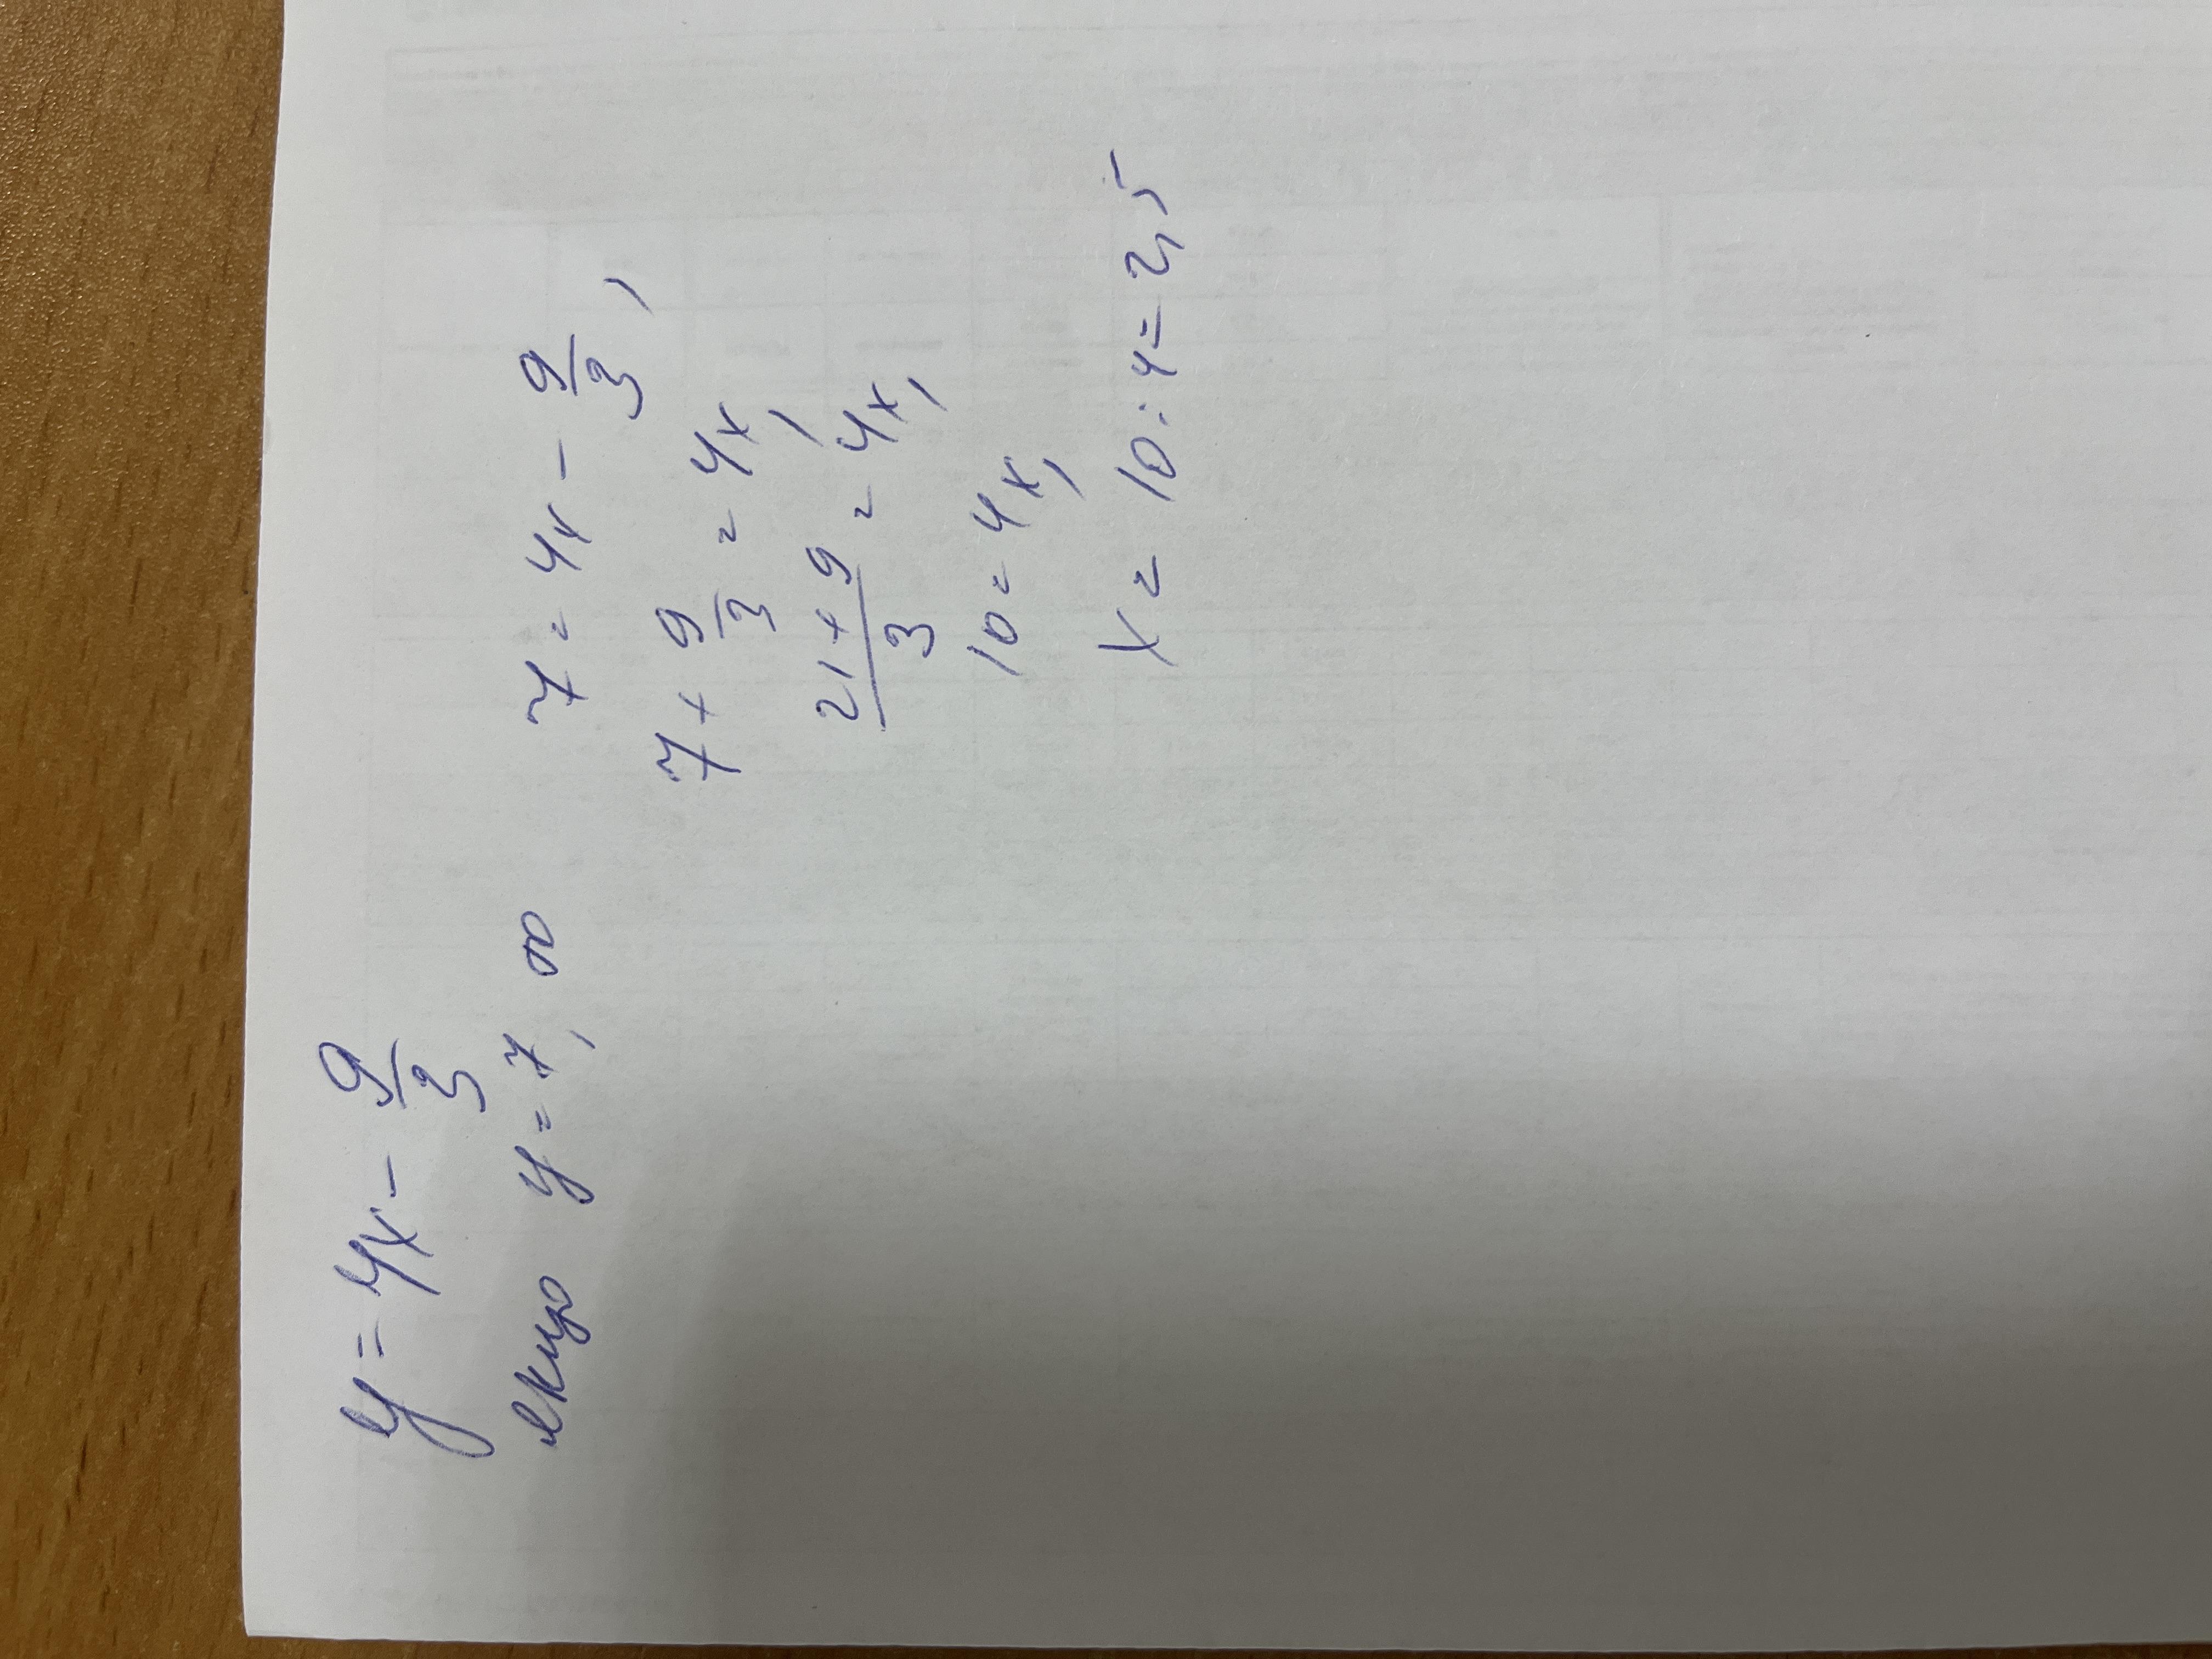 y = 4x - 9/3
якщо y = 7, то 7 = 4x - 9/3,
7 + 9/3 = 4x,
(21 + 9)/3 = 4x,
10 = 4x,
x = 10 : 4 = 2,5